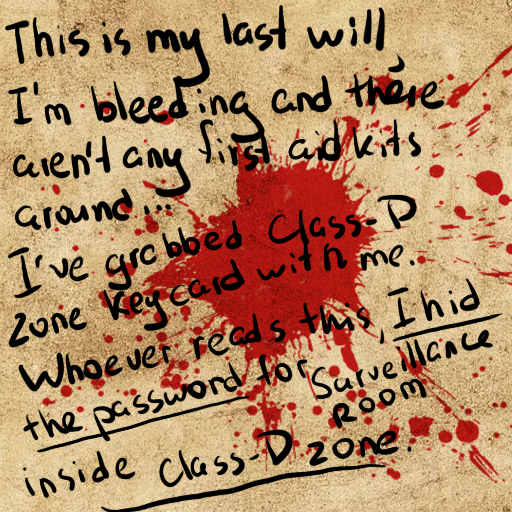 This is my last will,
I'm bleeding and there
aren't any first aid kits
around...
I've grabbed Class-D
zone keycard with me.
Whoever reads this, I hid
the password for Surveillance
ROOM
inside Class-D zone.